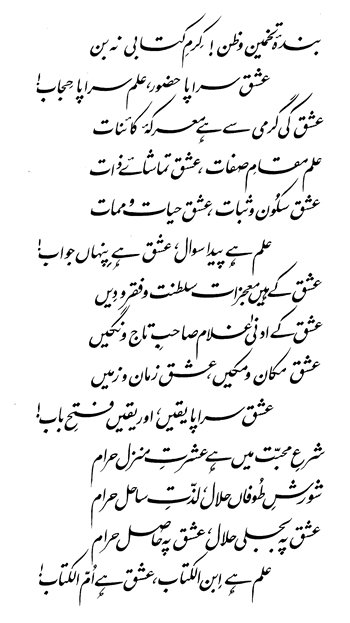 بندۂ تخمین و ظن! کرمِ کتابی نہ بن
عشق سراپا حضور، علم سراپا حجاب!
عشق کی گرمی سے ہے معرکۂ کائنات
علم مقامِ صفات، عشق تماشائے ذات
عشق سکون و ثبات، عشق حیات و ممات
علم ہے پیدا سوال، عشق ہے پنہاں جواب!
عشق کے ہیں معجزات سلطنت و فقر و دیں
عشق کے ادنیٰ غلام صاحبِ تاج و نگیں
عشق مکان و مکیں، عشق زمان و زمیں
عشق سراپا یقیں، اور یقیں فتحِ باب!
شرعِ محبت میں ہے عشرتِ منزل حرام
شورشِ طوفاں حلال، لذتِ ساحل حرام
عشق پہ بجلی حلال، عشق پہ حاصل حرام
علم ہے ابن الکتاب، عشق ہے اُمّ الکتاب!